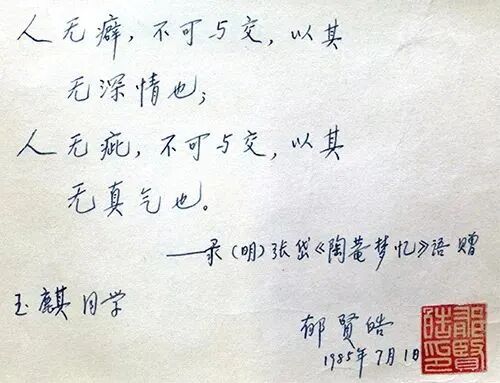 人无癖，不可与交，以其
无深情也；
人无疵，不可与交，以其
无真气也。
——录（明）张岱《陶菴梦忆》语赠
玉麒同学
郁賢皓
1985年7月1日
郁賢皓印